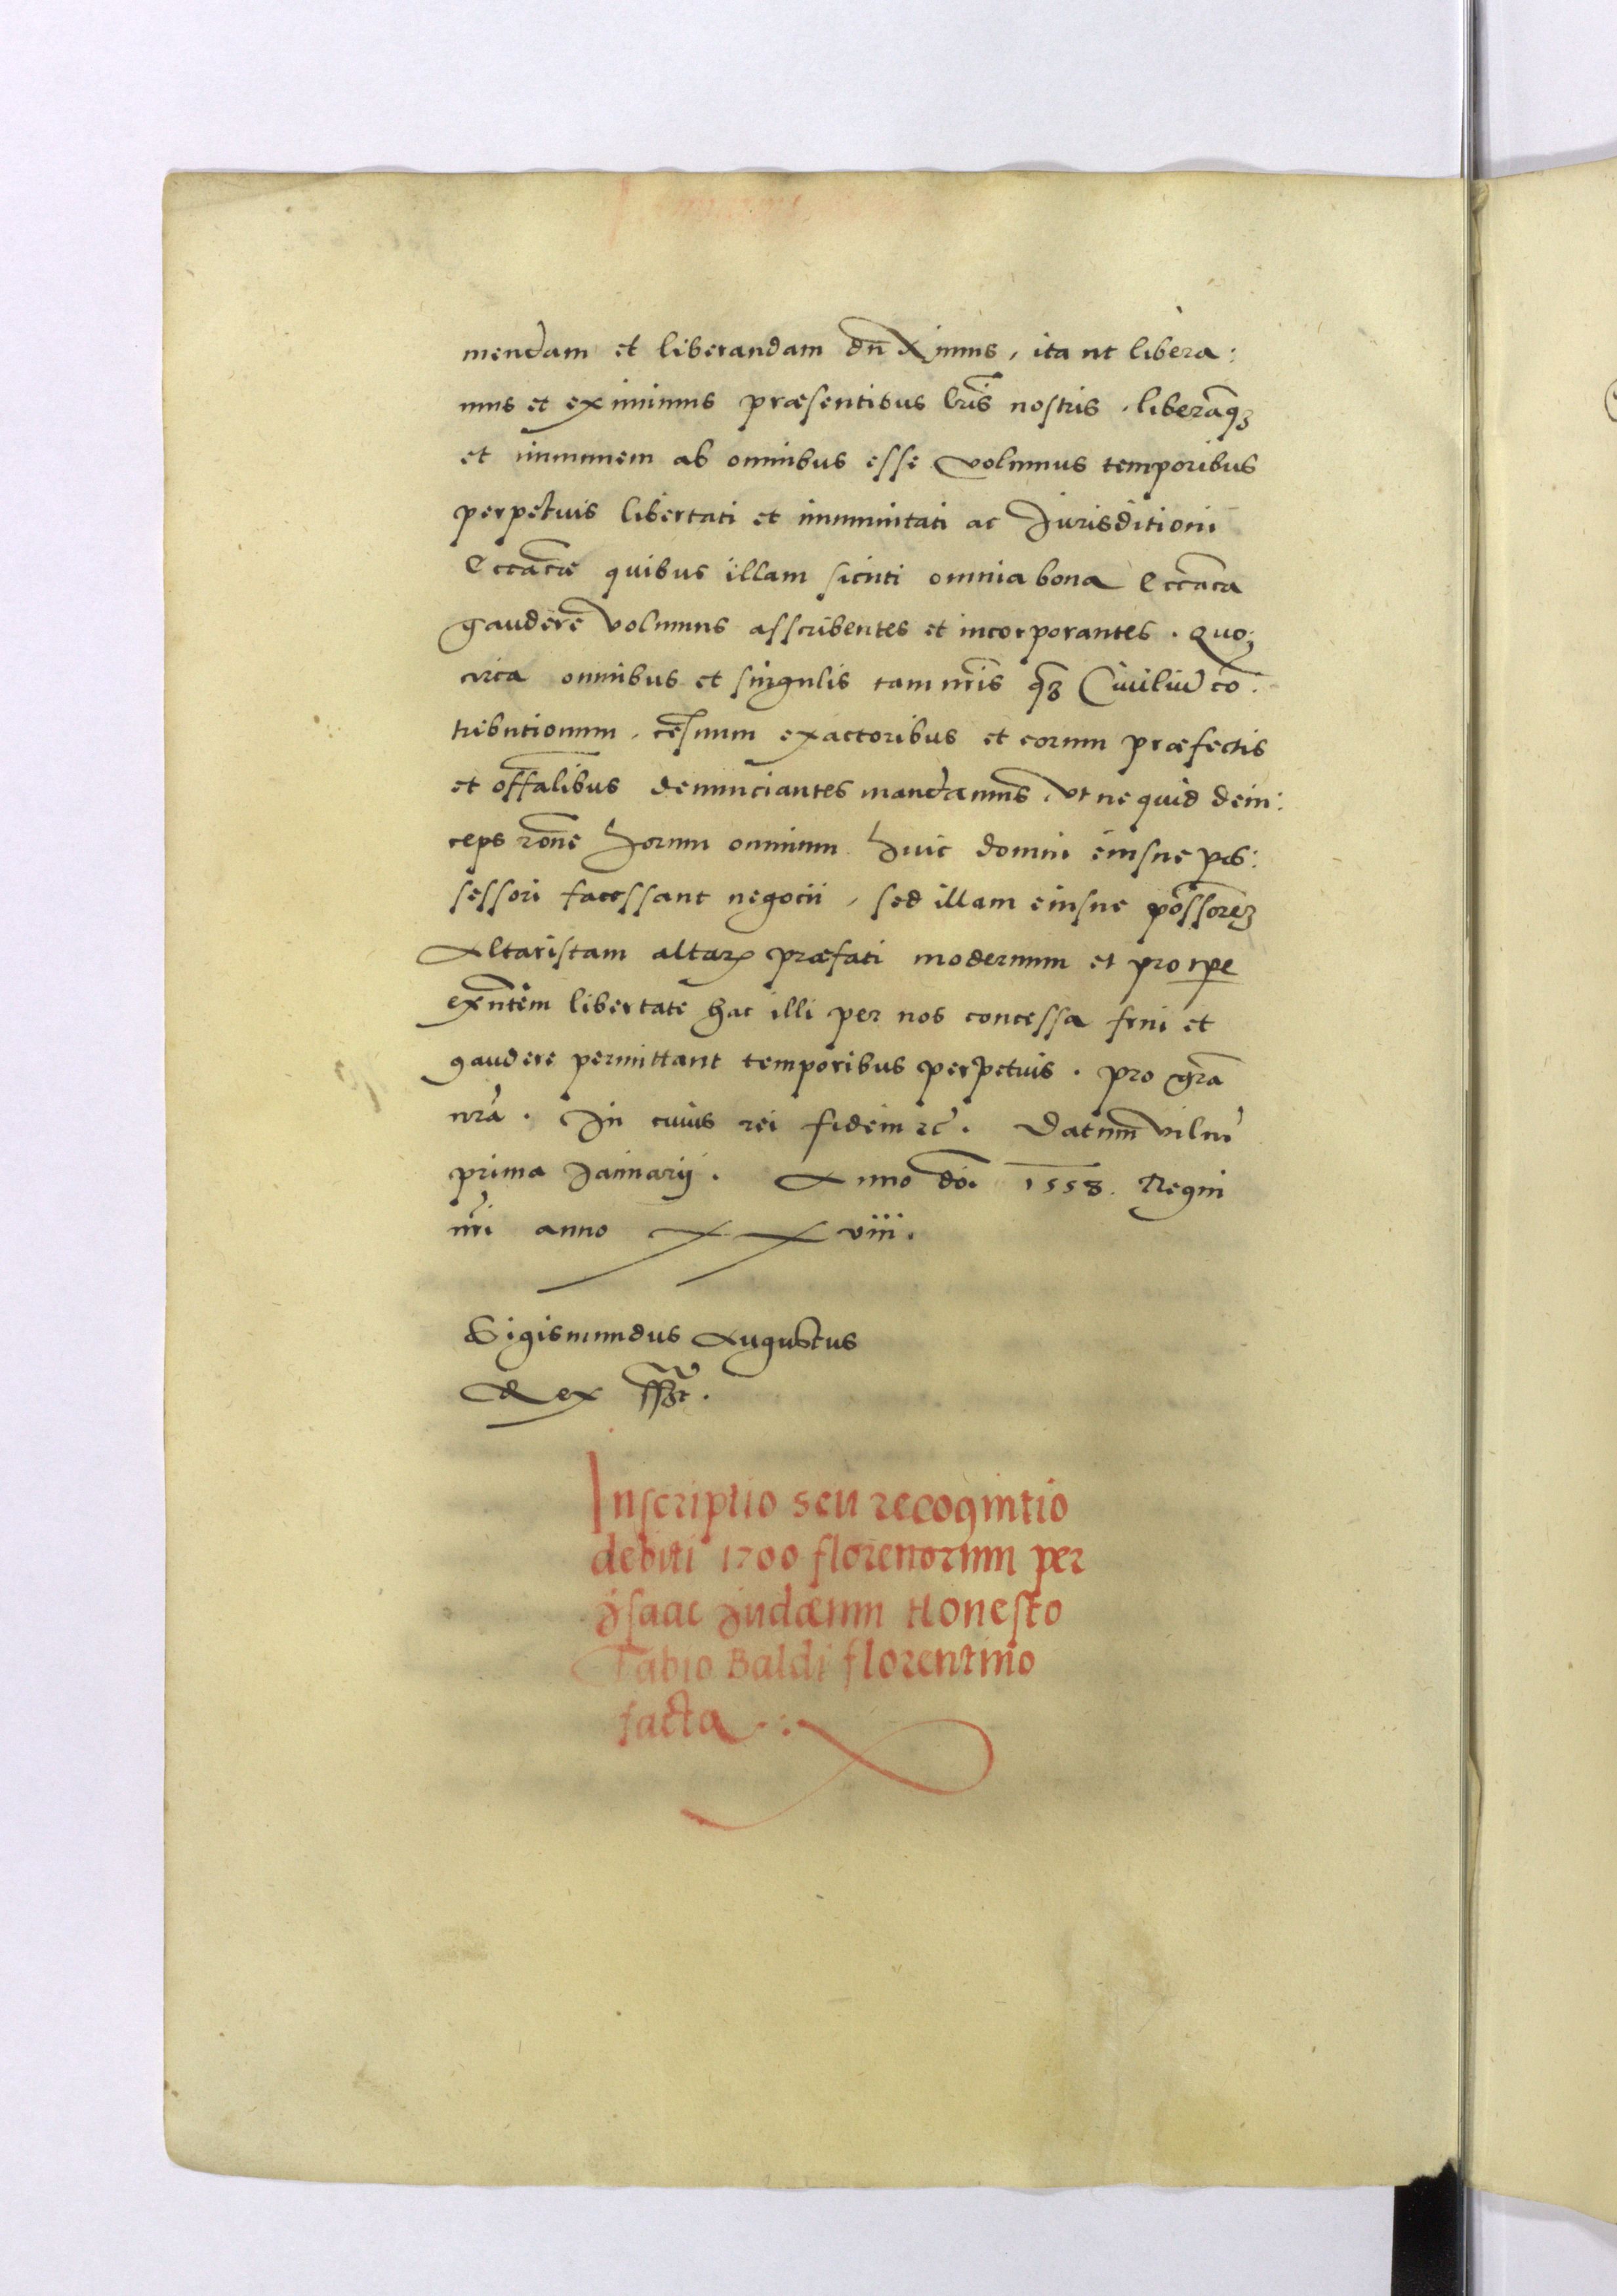 mendam et liberandam dn̄ximus, ita ut libera:
mus et eximimus præsentibus lr̄is nostris, liberāq3
et immunem ab omnibus esse volumus temporibus
perpetuis libertati et immunitati ac Jurisditioni
Eccācæ quibus illam sicuti omnia bona Eccāca
gaudere volumus asscribentes et incorporantes. Quo:
circa omnibus et singulis tam nr̄is q̄3 Civiliū cō:
tributionum, cēsuum exactoribus et eorum præfectis
et offālibus denunciantes mandamus, ut ne quid dein:
ceps rōne horum omnium huic domui eiusue pos:
sessori facessant negocii, sed illam eiusue pōssorē3
Altaristam altaris præfati modernum et pro tpe
exn̄tem libertate hac illi per nos concessa frui et
gaudere permittant temporibus perpetuis. pro gr̄a
nr̄a. In cuius rei fidem etc̄. Datum vilnē
prima Januarij. Anno dōi 1558. Regni
nr̄i anno xxviii.
Sigismundus Augustus
Rex sszt.
Inscriptio seu recognitio
debiti 1700 florenorum per
Isaac Judæum Honesto
Fabio Baldi florentino
facta